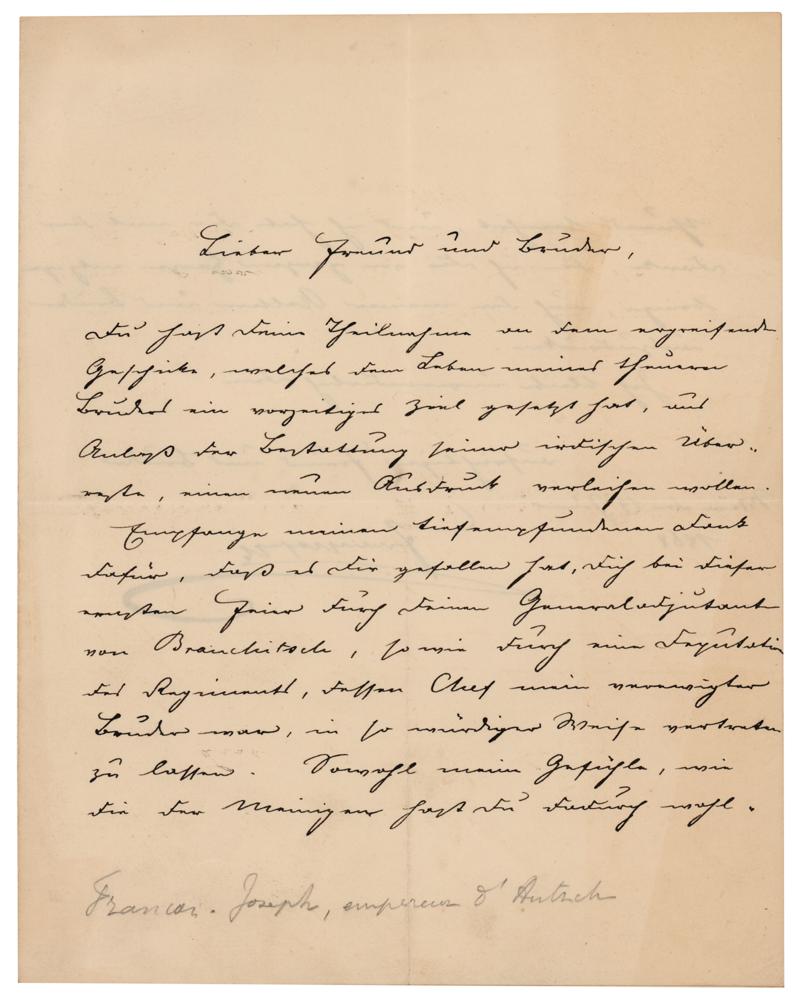 Lieber Freund und Bruder,
Du hast Deine Theilnahme an dem ergreifenden
Geschicke, welches dem Leben meines theuern
Bruders ein vorzeitiges Ziel gesetzt hat, aus
Anlaß der Bestattung seiner irdischen Über-
reste, einen neuen Ausdruck verleihen wollen.
Empfange meinen tiefempfundenen Dank
dafür, daß es Dir gefallen hat, Dich bei dieser
ernsten Feier durch Deinen Generaladjutanten
von Brauchitsch, sowie durch eine Deputation
des Regiments, dessen Chef mein verewigter
Bruder war, in so würdiger Weise vertreten
zu lassen. Sowohl meine Gefühle, wie
die der Meinigen hast Du dadurch wohl-
Francois-Joseph, empereur d'Autrich